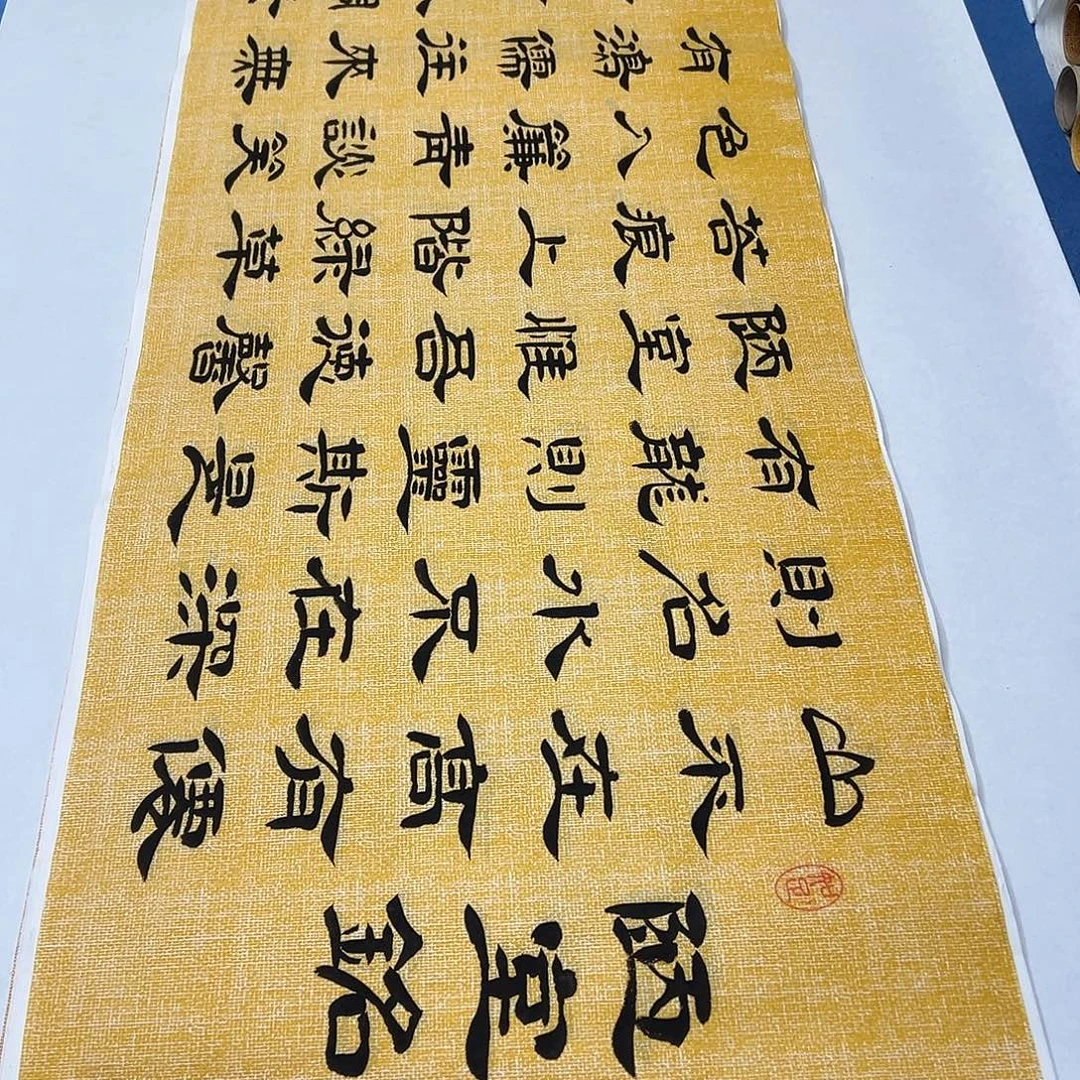 陋室銘
山不在高有僊
則名水不在深
有龍則靈斯是
陋室惟吾德馨
苔痕上階綠草
色入簾青談笑
有鴻儒往來無